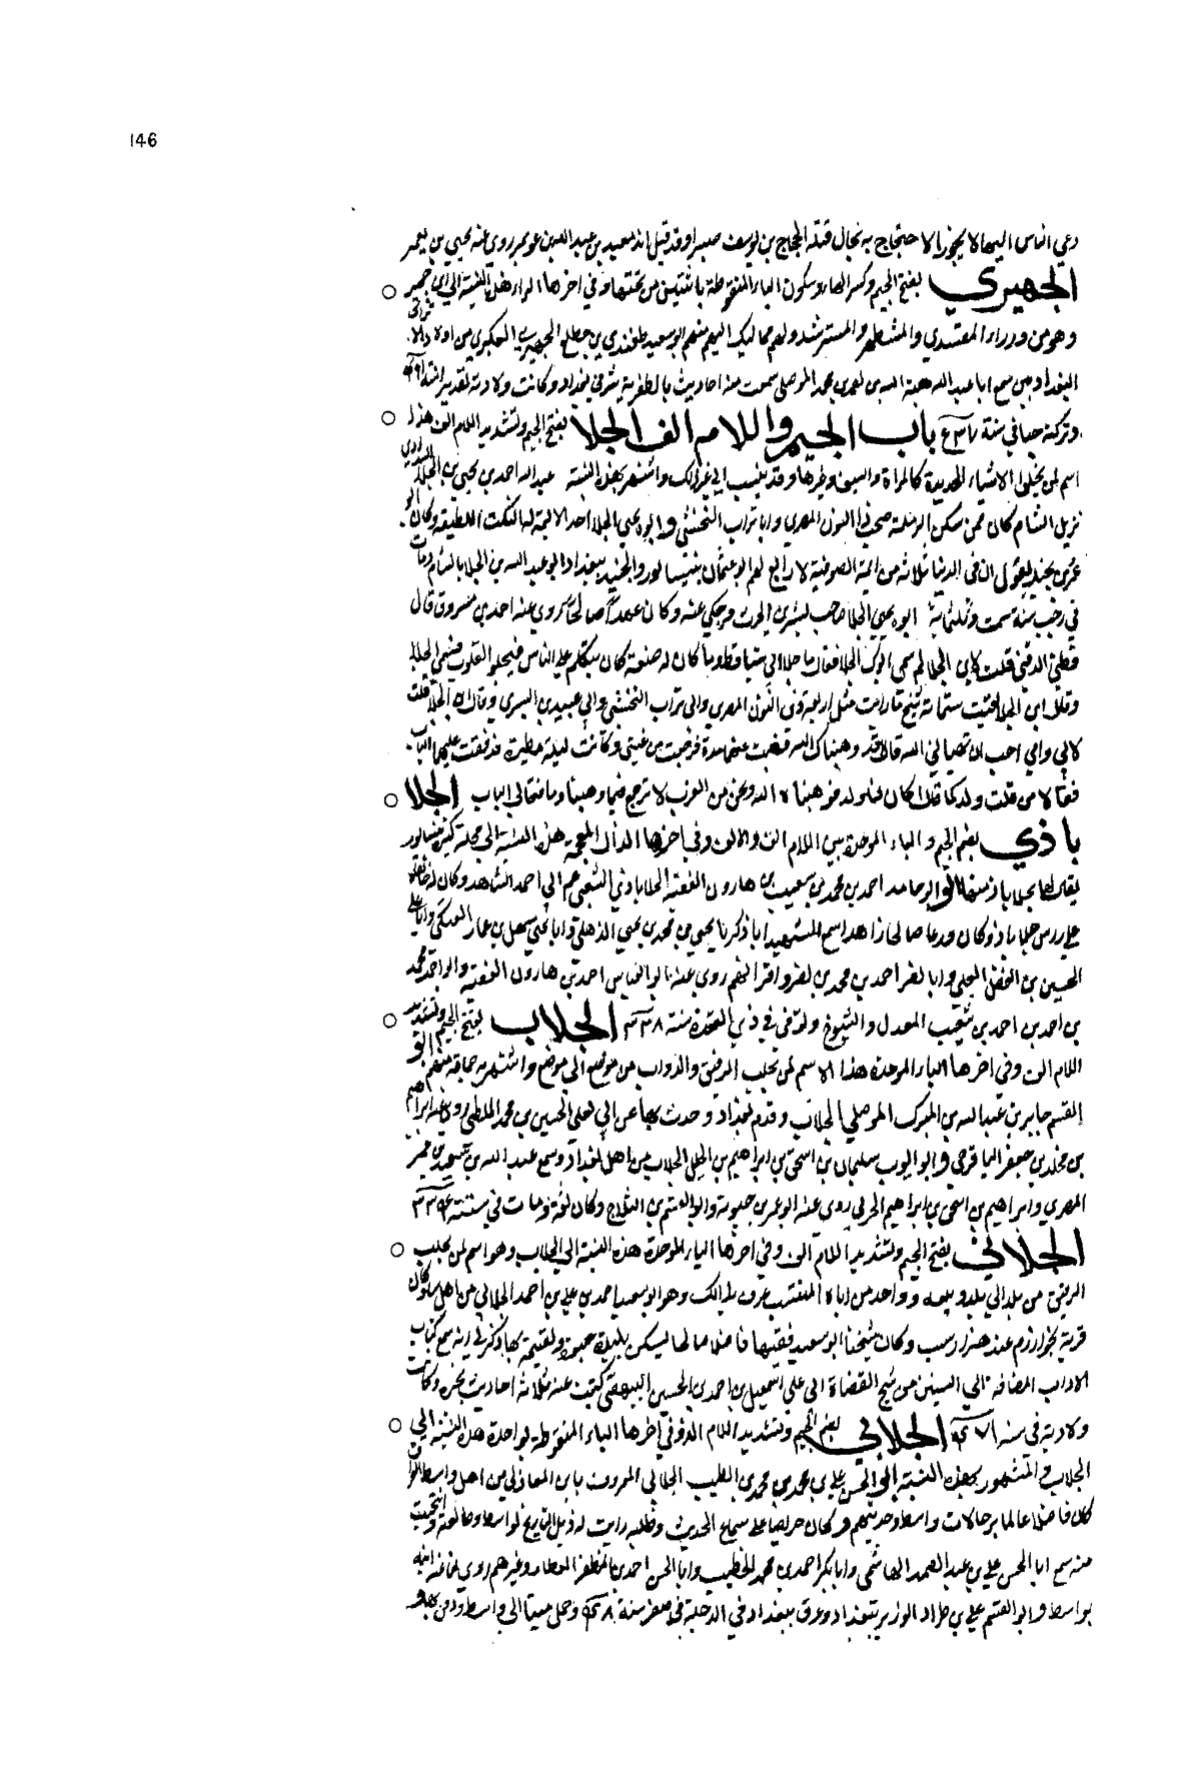 146
دعي الناس اليها لا يجوز الاحتجاج به بحال قتله الحجاج بن يوسف صبرا وقد قيل انه معبد بن عبد الله بن عويمر روى عنه يحيى بن يعمر
الجهيري بفتح الجيم وكسر الهاء وسكون الياء المنقوطة باثنتين من تحتها وفي اخرها الراء هذه النسبة الى ابن جهير
وهو من وزراء المقتدي والمستظهر والمسترشد ولهم مماليك اليهم منهم ابو سعيد طغندي بن خطلع الجهيري العكبري من اولاد
البغداديين سمع ابا عبد الله هبة الله بن محمد الموصلي سمعت منه احاديث بالظفرية شرقي بغداد وكانت ولادته تقديرا سنة
وتركته حيا في سنة باب الجيم واللام الف الجلا بفتح الجيم وتشديد اللام الف هذا
اسم لمن يجلي الاشياء الحديدية كالمراة والسيف وغيرها وقد ينسب الي غير ذلك واشتهر بهذه النسبة عبد الله احمد بن يحيى بن الجلا البغدادي
نزيل الشام كان ممن سكن الرملة صحب ذا النون المصري وابا تراب النخشبي وابوه يحيى الجلا احد الائمة له النكت اللطيفة وكان ابو
عمرو بن نجيد يقول ان في الدنيا ثلاثة من ايمة الصوفية لا رابع لهم ابو عثمان بنيسابور والجنيد ببغداد وابو عبد الله بن الجلا بالشام ومات
في رجب سنة ست وثلثماية ابوه يحيى الجلا صاحب بشر بن الحرث وحكي عنه وكان عبدا صالحا روى عنه احمد بن مسروق قال
الدقي قلت لابن الجلا لم سمي ابوك الجلا فقال ما جلا ابي شيا قط وما كان له صنعة كان يتكلم على الناس فيجلو القلوب فسمي الجلا
وقال ابن الجلا لقيت ستماية شيخ ما رايت مثل اربعة ذي النون المصري وابي تراب النخشبي وابي عبيد البسري وقال ابن الجلا قلت
لابي وامي احب ان تهباني لله قالا قد وهبناك لله فغبت عنهما مدة فرجعت من غيبتي وكانت ليلة مطيرة فدققت عليهما الباب
فقالا من قلت ولدكما قالا كان لنا ولد فوهبناه لله ونحن من العرب لا نرجع فيما وهبنا وما فتحا لي الباب الجلا
باذي بضم الجيم والباء الموحدة بين اللام الف والالف وفي اخرها الذال المعجمة هذه النسبة الى محلة كبيرة بنيسابور
يقال لها جلاباذ منها ابو حامد احمد بن محمد بن شعيب بن هارون الفقيه الجلاباذي الشعيبي عم ابي احمد الشاهد وكان له خانقاه
على راس جلاباذ وكان ورعا صالحا زاهدا سمع ابا زكريا يحيى بن محمد بن يحيى الذهلي وابا يحيى سهل بن عمار العتكي وابا علي
الحسين بن الفضل البجلي وابا نصر احمد بن محمد بن نصر واقرانهم روى عنه ابو العباس احمد بن هارون الفقيه وابو احمد محمد
بن احمد بن شعيب المعدل والشيوخ وتوفي في ذي القعدة سنة ٣٣٨ الجلاب بفتح الجيم وتشديد
اللام الف وفي اخرها الباء الموحدة هذا الاسم لمن يجلب الرقيق والدواب من موضع الى موضع واشتهر به جماعة منهم ابو
القسم جابر بن عبد الله بن المبرك الموصلي الجلاب وقدم بغداد وحدث بها عن ابي يعلى الحسين بن محمد الملطي روى عنه ابراهيم
بن مخلد بن جعفر الباقرحي وابو ايوب سليمان بن اسحق بن ابراهيم بن الخليل الجلاب من اهل بغداد وسمع عبد الله بن
المصري وابراهيم بن اسحق بن ابراهيم الحربي روى عنه ابو عمر بن حيوية وابو القسم بن الثلاج وكان ثقة ومات في سنة ٣٣٤
الجلابي بفتح الجيم وتشديد اللام الف وفي اخرها الباء الموحدة هذه النسبة الى الجلاب وهو اسم لمن يجلب
الرقيق من بلد الى بلد ويبيعه وواحد من اباء المنتسب عرف بذلك وهو ابو سعيد احمد بن علي بن احمد الجلابي من اهل
قرية بخوارزم عند هزاراسب وكان شيخنا ابو سعيد فقيها فاضلا لقيته بها وذكر لي انه سمع كتاب
الاداب المضافة الي السنن من شيخ القضاة ابي علي اسمعيل بن احمد بن الحسين البيهقي كتبت عنه ثلاثة احاديث وكانت
ولادته في سنة الجلابي بضم الجيم وتشديد اللام الف وفي اخرها الباء المنقوطة بواحدة هذه النسبة الى
الجلاب والمشهور بهذه النسبة ابو الحسن علي بن محمد بن محمد بن الطيب الجلابي المعروف بابن المغازلي من اهل واسط العراق
كان فاضلا عالما برجالات واسط وحديثهم وكان حريصا على سماع الحديث وطلبه رايت له ذيل التاريخ لواسط وطالعته وانتخبت
منه سمع ابا الحسن علي بن عبد الصمد الهاشمي وابا بكر احمد بن محمد الخطيب وابا الحسن احمد بن المظفر العطار وغيرهم روى لنا عنه ابنه
بواسط وابو القسم علي بن طراد الوزير ببغداد وغرق ببغداد في الدجلة في صفر سنة وحمل ميتا الى واسط ودفن بها